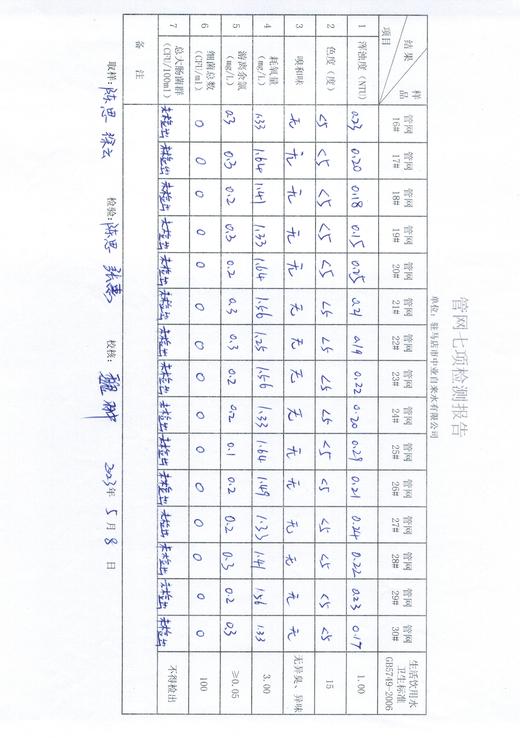 管网七项检测报告
单位：驻马店市中业自来水有限公司
结果 样品 项目 管网16# 管网17# 管网18# 管网19# 管网20# 管网21# 管网22# 管网23# 管网24# 管网25# 管网26# 管网27# 管网28# 管网29# 管网30# 生活饮用水卫生标准GB5749-2006
1 浑浊度（NTU） 0.23 0.20 0.18 0.15 0.25 0.21 0.19 0.22 0.20 0.29 0.21 0.24 0.22 0.23 0.17 1.00
2 色度（度） <5 <5 <5 <5 <5 <5 <5 <5 <5 <5 <5 <5 <5 <5 <5 15
3 嗅和味 无 无 无 无 无 无 无 无 无 无 无 无 无 无 无 无异臭、异味
4 耗氧量（mg/L） 1.33 1.64 1.41 1.33 1.64 1.56 1.25 1.56 1.33 1.64 1.49 1.33 1.41 1.56 1.33 3.00
5 游离余氯（mg/L） 0.3 0.3 0.2 0.3 0.2 0.3 0.3 0.2 0.2 0.1 0.2 0.2 0.3 0.2 0.3 ≥0.05
6 细菌总数（CFU/ml） 0 0 0 0 0 0 0 0 0 0 0 0 0 0 0 100
7 总大肠菌群（CFU/100ml） 未检出 未检出 未检出 未检出 未检出 未检出 未检出 未检出 未检出 未检出 未检出 未检出 未检出 未检出 未检出 不得检出
备 注
取样：陈思 徐云 检验：陈思 张惠 校核： 2023年 5月 8日